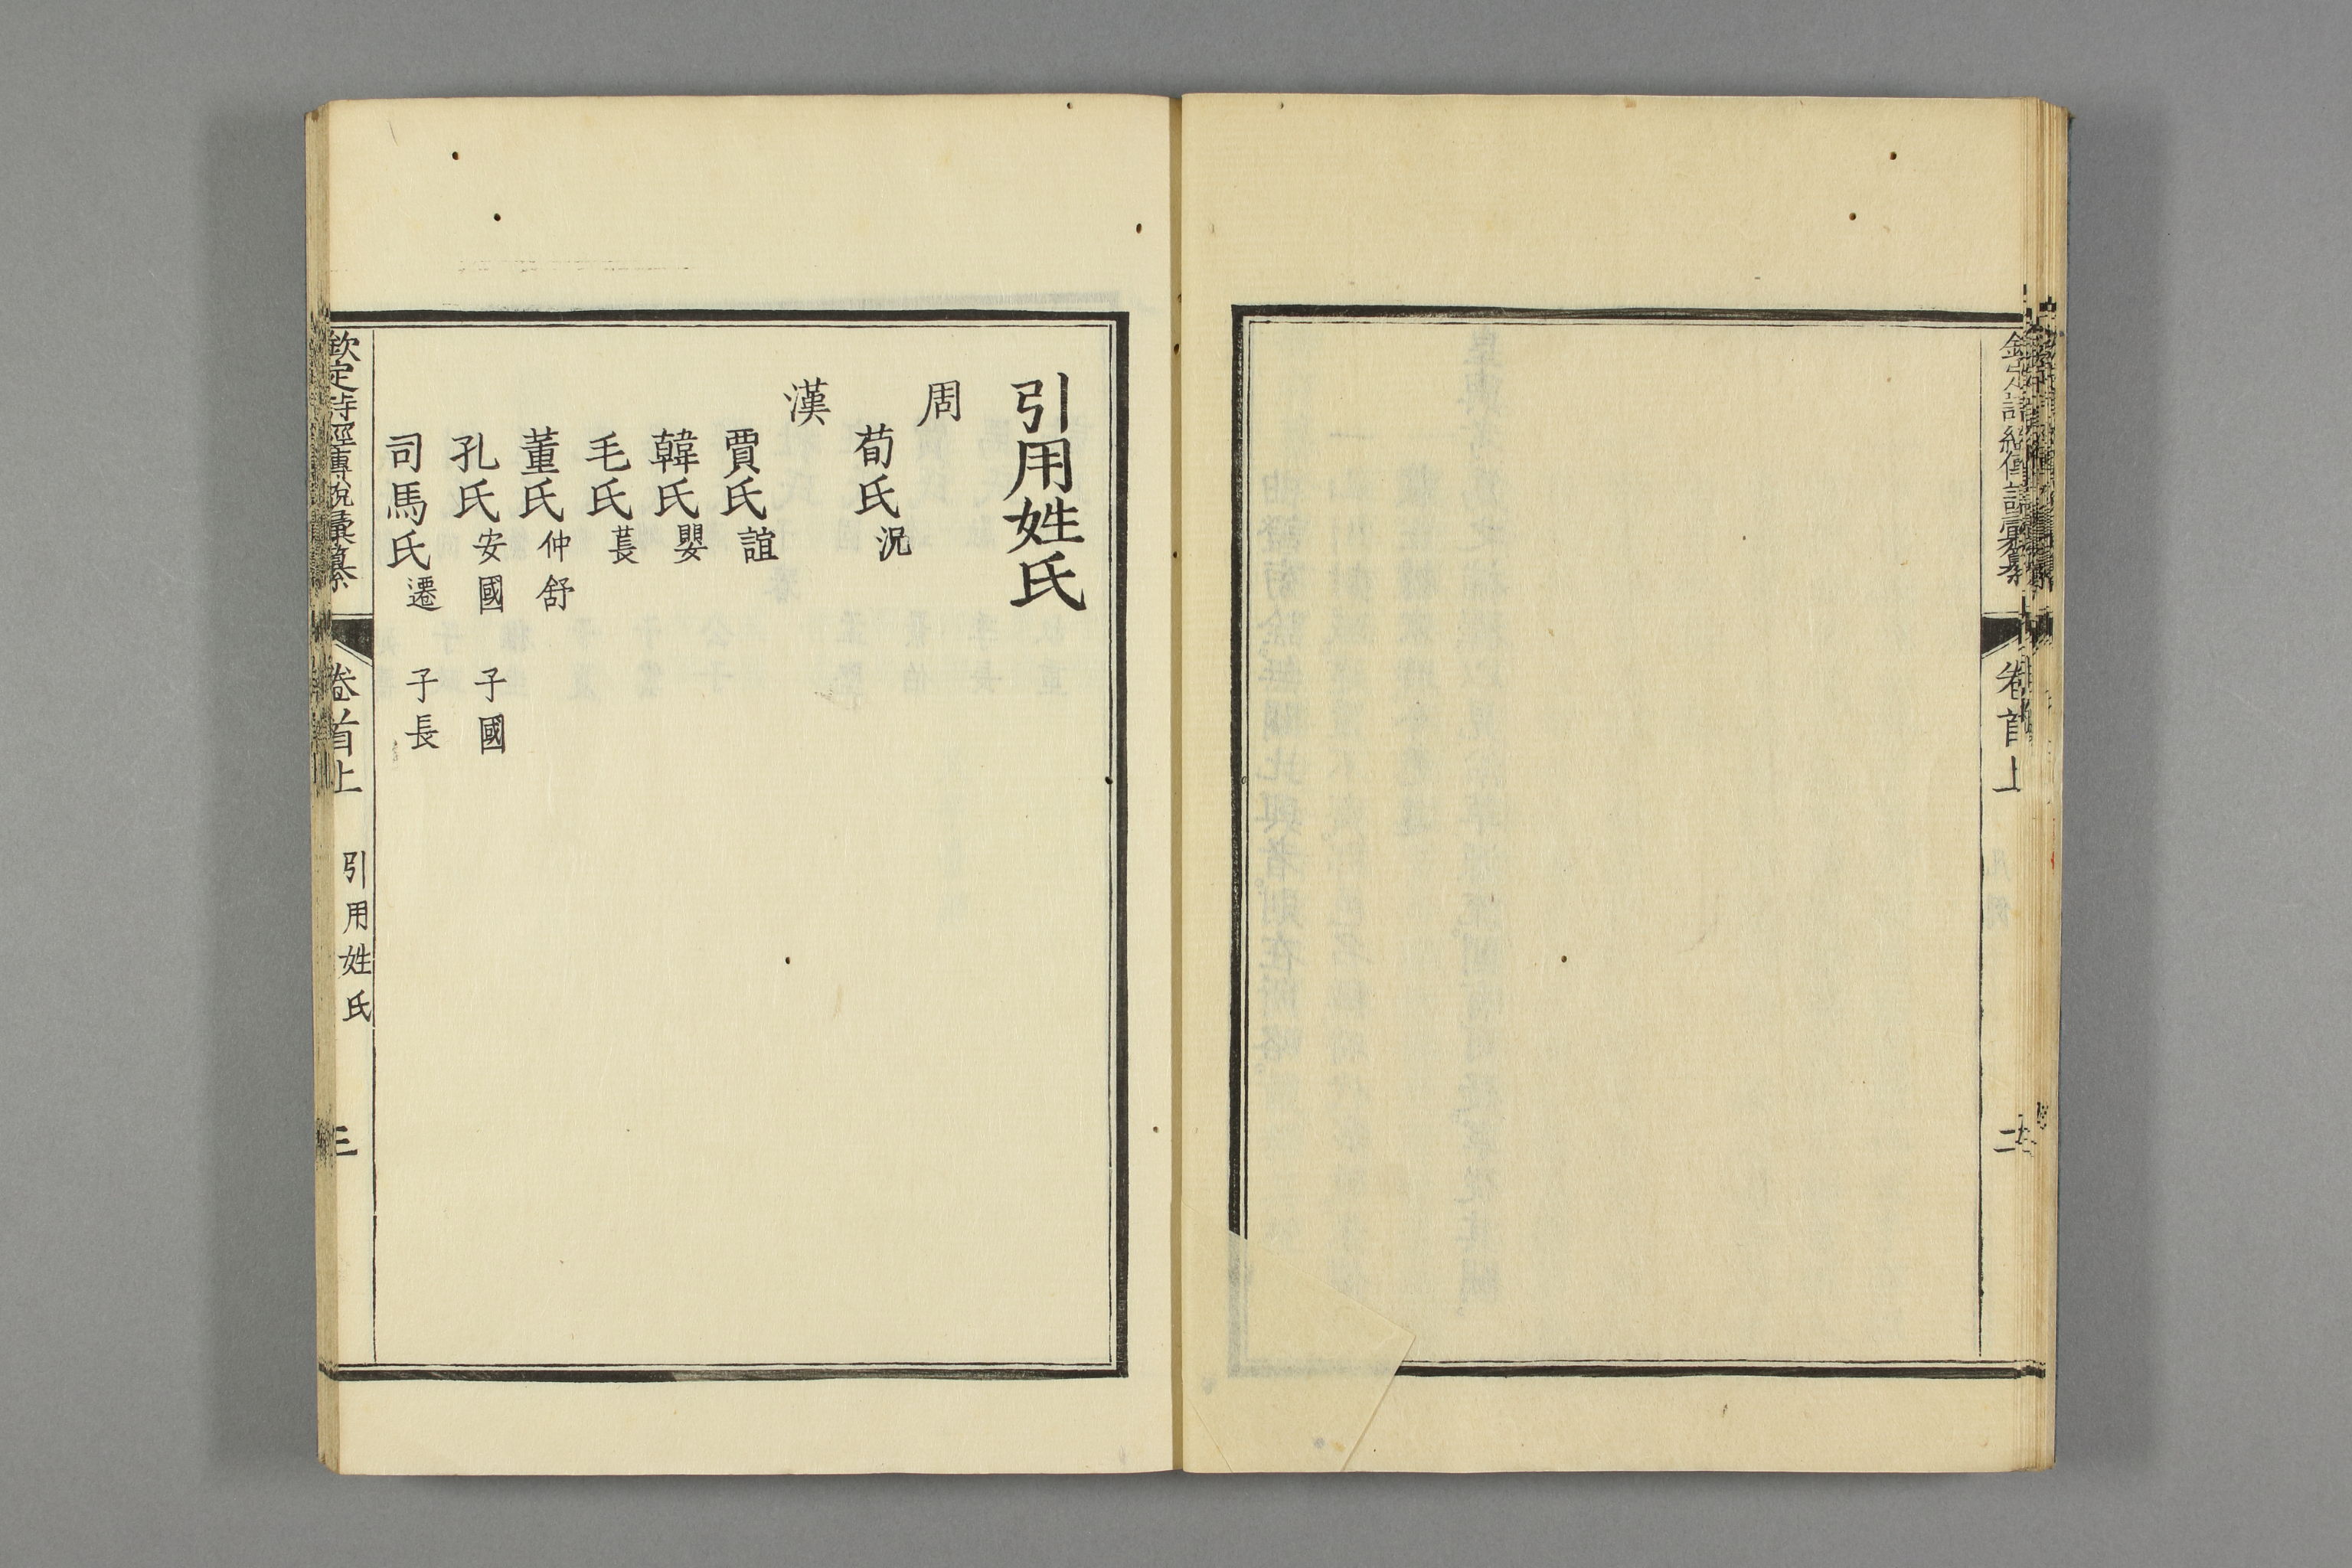 卷首上
二
引用姓氏
周
荀氏況
漢
賈氏誼
韓氏嬰
毛氏萇
董氏仲舒
孔氏安國 子國
司馬氏遷 子長
欽定詩經傳說彙纂 卷首上 引用姓氏 三